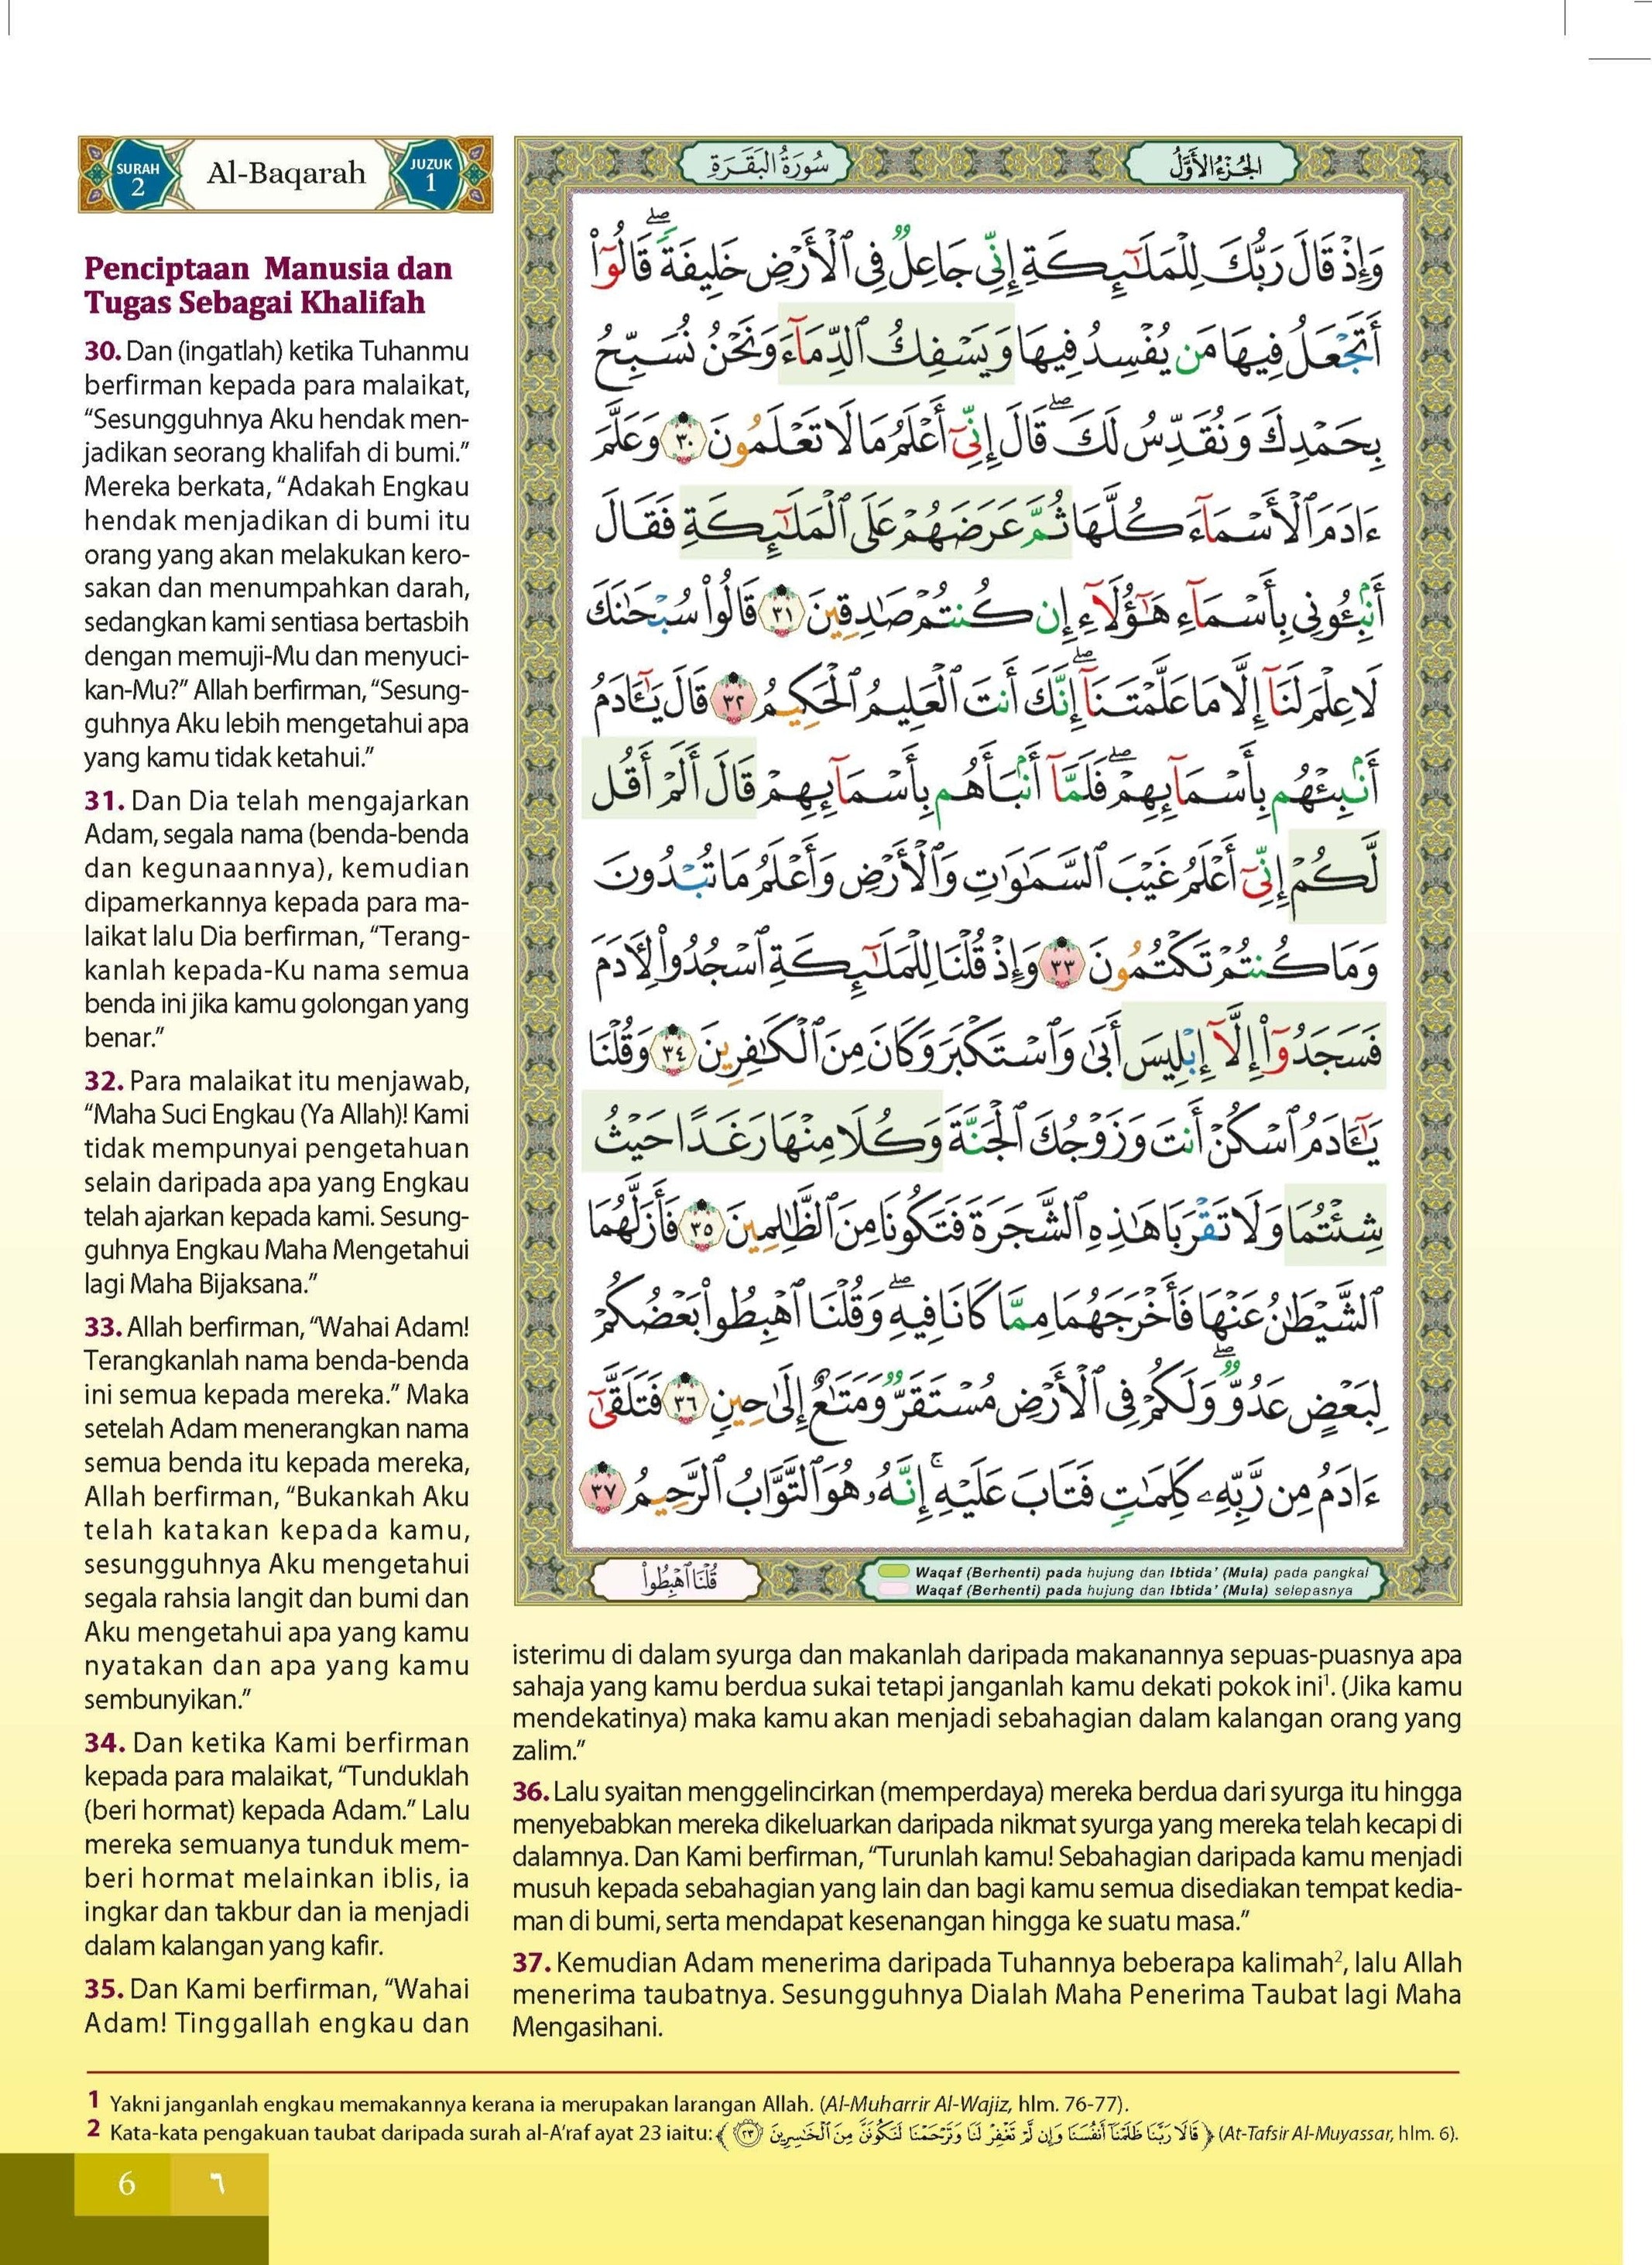 SURAH
2
Al-Baqarah
JUZUK
1
Penciptaan Manusia dan
Tugas Sebagai Khalifah
30. Dan (ingatlah) ketika Tuhanmu
berfirman kepada para malaikat,
“Sesungguhnya Aku hendak men-
jadikan seorang khalifah di bumi.”
Mereka berkata, “Adakah Engkau
hendak menjadikan di bumi itu
orang yang akan melakukan kero-
sakan dan menumpahkan darah,
sedangkan kami sentiasa bertasbih
dengan memuji-Mu dan menyuci-
kan-Mu?” Allah berfirman, “Sesung-
guhnya Aku lebih mengetahui apa
yang kamu tidak ketahui.”
31. Dan Dia telah mengajarkan
Adam, segala nama (benda-benda
dan kegunaannya), kemudian
dipamerkannya kepada para ma-
laikat lalu Dia berfirman, “Terang-
kanlah kepada-Ku nama semua
benda ini jika kamu golongan yang
benar.”
32. Para malaikat itu menjawab,
“Maha Suci Engkau (Ya Allah)! Kami
tidak mempunyai pengetahuan
selain daripada apa yang Engkau
telah ajarkan kepada kami. Sesung-
guhnya Engkau Maha Mengetahui
lagi Maha Bijaksana.”
33. Allah berfirman, “Wahai Adam!
Terangkanlah nama benda-benda
ini semua kepada mereka.” Maka
setelah Adam menerangkan nama
semua benda itu kepada mereka,
Allah berfirman, “Bukankah Aku
telah katakan kepada kamu,
sesungguhnya Aku mengetahui
segala rahsia langit dan bumi dan
Aku mengetahui apa yang kamu
nyatakan dan apa yang kamu
sembunyikan.”
34. Dan ketika Kami berfirman
kepada para malaikat, “Tunduklah
(beri hormat) kepada Adam.” Lalu
mereka semuanya tunduk mem-
beri hormat melainkan iblis, ia
ingkar dan takbur dan ia menjadi
dalam kalangan yang kafir.
35. Dan Kami berfirman, “Wahai
Adam! Tinggallah engkau dan
سُورَةُ البَقَرَةِ
الجُزْءُ الأَوَّلُ
وَإِذْ قَالَ رَبُّكَ لِلْمَلَٰٓئِكَةِ إِنِّي جَاعِلٌ فِي ٱلْأَرْضِ خَلِيفَةً ۖ قَالُوٓا۟
أَتَجْعَلُ فِيهَا مَن يُفْسِدُ فِيهَا وَيَسْفِكُ ٱلدِّمَآءَ وَنَحْنُ نُسَبِّحُ
بِحَمْدِكَ وَنُقَدِّسُ لَكَ ۖ قَالَ إِنِّيٓ أَعْلَمُ مَا لَا تَعْلَمُونَ ٣٠ وَعَلَّمَ
ءَادَمَ ٱلْأَسْمَآءَ كُلَّهَا ثُمَّ عَرَضَهُمْ عَلَى ٱلْمَلَٰٓئِكَةِ فَقَالَ
أَنۢبِـُٔونِي بِأَسْمَآءِ هَٰٓؤُلَآءِ إِن كُنتُمْ صَٰدِقِينَ ٣١ قَالُوا۟ سُبْحَٰنَكَ
لَا عِلْمَ لَنَآ إِلَّا مَا عَلَّمْتَنَآ ۖ إِنَّكَ أَنتَ ٱلْعَلِيمُ ٱلْحَكِيمُ ٣٢ قَالَ يَٰٓـَٔادَمُ
أَنۢبِئْهُم بِأَسْمَآئِهِمْ ۖ فَلَمَّآ أَنۢبَأَهُم بِأَسْمَآئِهِمْ قَالَ أَلَمْ أَقُل
لَّكُمْ إِنِّيٓ أَعْلَمُ غَيْبَ ٱلسَّمَٰوَٰتِ وَٱلْأَرْضِ وَأَعْلَمُ مَا تُبْدُونَ
وَمَا كُنتُمْ تَكْتُمُونَ ٣٣ وَإِذْ قُلْنَا لِلْمَلَٰٓئِكَةِ ٱسْجُدُوا۟ لِـَٔادَمَ
فَسَجَدُوٓا۟ إِلَّآ إِبْلِيسَ أَبَىٰ وَٱسْتَكْبَرَ وَكَانَ مِنَ ٱلْكَٰفِرِينَ ٣٤ وَقُلْنَا
يَٰٓـَٔادَمُ ٱسْكُنْ أَنتَ وَزَوْجُكَ ٱلْجَنَّةَ وَكُلَا مِنْهَا رَغَدًا حَيْثُ
شِئْتُمَا وَلَا تَقْرَبَا هَٰذِهِ ٱلشَّجَرَةَ فَتَكُونَا مِنَ ٱلظَّٰلِمِينَ ٣٥ فَأَزَلَّهُمَا
ٱلشَّيْطَٰنُ عَنْهَا فَأَخْرَجَهُمَا مِمَّا كَانَا فِيهِ ۖ وَقُلْنَا ٱهْبِطُوا۟ بَعْضُكُمْ
لِبَعْضٍ عَدُوٌّ ۖ وَلَكُمْ فِي ٱلْأَرْضِ مُسْتَقَرٌّ وَمَتَٰعٌ إِلَىٰ حِينٍ ٣٦ فَتَلَقَّىٰٓ
ءَادَمُ مِن رَّبِّهِۦ كَلِمَٰتٍ فَتَابَ عَلَيْهِ ۚ إِنَّهُۥ هُوَ ٱلتَّوَّابُ ٱلرَّحِيمُ ٣٧
قُلْنَا ٱهْبِطُوا۟
Waqaf (Berhenti) pada hujung dan Ibtida’ (Mula) pada pangkal
Waqaf (Berhenti) pada hujung dan Ibtida’ (Mula) selepasnya
isterimu di dalam syurga dan makanlah daripada makanannya sepuas-puasnya apa
sahaja yang kamu berdua sukai tetapi janganlah kamu dekati pokok ini¹. (Jika kamu
mendekatinya) maka kamu akan menjadi sebahagian dalam kalangan orang yang
zalim.”
36. Lalu syaitan menggelincirkan (memperdaya) mereka berdua dari syurga itu hingga
menyebabkan mereka dikeluarkan daripada nikmat syurga yang mereka telah kecapi di
dalamnya. Dan Kami berfirman, “Turunlah kamu! Sebahagian daripada kamu menjadi
musuh kepada sebahagian yang lain dan bagi kamu semua disediakan tempat kedia-
man di bumi, serta mendapat kesenangan hingga ke suatu masa.”
37. Kemudian Adam menerima daripada Tuhannya beberapa kalimah², lalu Allah
menerima taubatnya. Sesungguhnya Dialah Maha Penerima Taubat lagi Maha
Mengasihani.
1 Yakni janganlah engkau memakannya kerana ia merupakan larangan Allah. (Al-Muharrir Al-Wajiz, hlm. 76-77).
2 Kata-kata pengakuan taubat daripada surah al-A’raf ayat 23 iaitu: ﴿ قَالَا رَبَّنَا ظَلَمْنَآ أَنفُسَنَا وَإِن لَّمْ تَغْفِرْ لَنَا وَتَرْحَمْنَا لَنَكُونَنَّ مِنَ ٱلْخَٰسِرِينَ ٢٣ ﴾ (At-Tafsir Al-Muyassar, hlm. 6).
6
٦